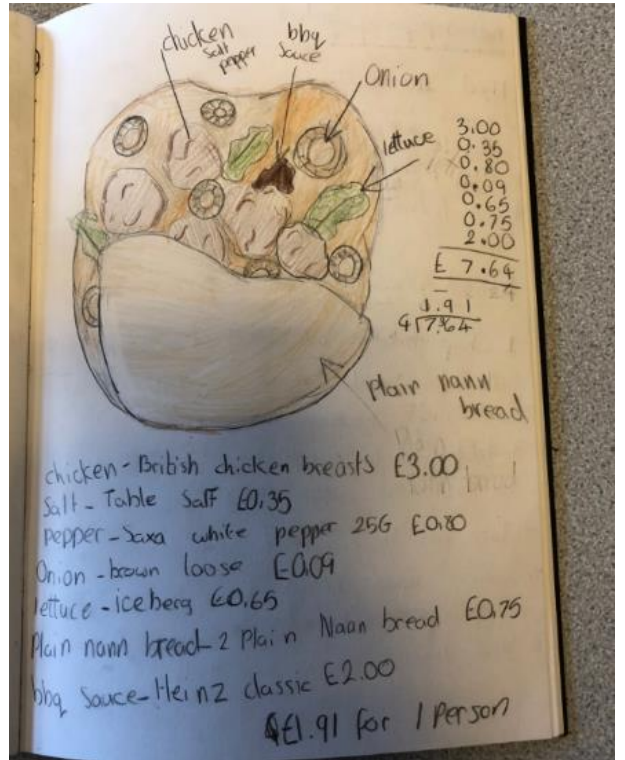 chicken
salt
pepper
bbq
sauce
Onion
lettuce
3.00
0.35
0.80
0.09
0.65
0.75
2.00
£ 7.64
1.91
4 7.64
Plain nann
bread
chicken - British chicken breasts £3.00
Salt - Table Salt £0.35
pepper - Saxa white pepper 25G £0.80
Onion - brown loose £0.09
lettuce - iceberg £0.65
Plain nann bread - 2 Plain Naan bread £0.75
bbq sauce - Heinz classic £2.00
£1.91 for 1 Person